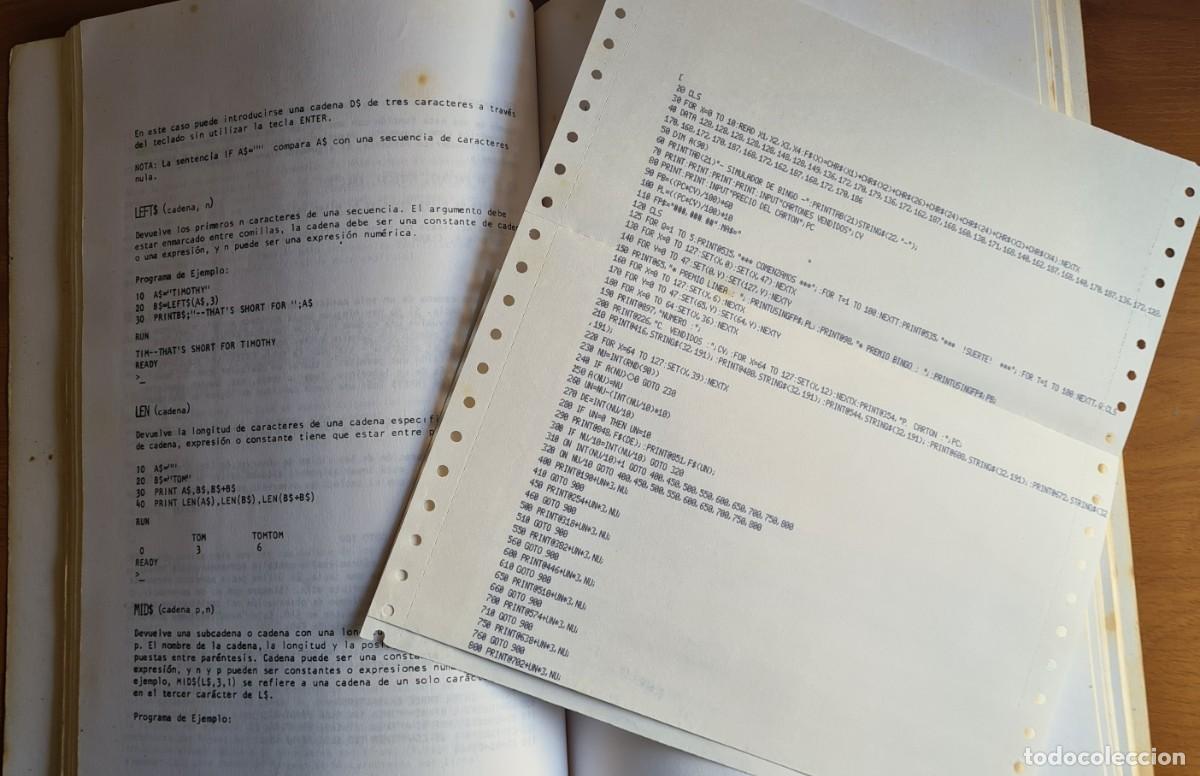 En este caso puede introducirse una cadena D$ de tres caracteres a través
del teclado sin utilizar la tecla ENTER.
NOTA: La sentencia IF A$="" compara A$ con una secuencia de caracteres
nula.
LEFT$ (cadena, n)
Devuelve los primeros n caracteres de una secuencia. El argumento debe
estar enmarcado entre comillas, la cadena debe ser una constante de
o una expresión, y n puede ser una expresión numérica.
Programa de Ejemplo:
10 A$="TIMOTHY"
20 B$=LEFT$(A$,3)
30 PRINTB$;"--THAT'S SHORT FOR ";A$
RUN
TIM--THAT'S SHORT FOR TIMOTHY
READY
>_
LEN (cadena)
Devuelve la longitud de caracteres de una cadena
de cadena, expresión o constante tiene que estar entre
10 A$=""
20 B$="TOM"
30 PRINT A$,B$,B$+B$
40 PRINT LEN(A$),LEN(B$),LEN(B$+B$)
RUN
TOM TOMTOM
0 3 6
READY
>_
MID$ (cadena p,n)
Devuelve una subcadena o cadena con una
p. El nombre de la cadena, la longitud y la
puestas entre paréntesis. Cadena puede ser una
expresión, y n y p pueden ser constantes o expresiones
ejemplo, MID$(L$,3,1) se refiere a una cadena de un solo
en el tercer carácter de L$.
Programa de Ejemplo:
[
20 CLS
30 FOR X=0 TO 10:READ X1,X2,X3,X4:F$(X)=CHR$(X1)+CHR$(X2)+CHR$(26)+CHR$(24)+CHR$(24)+CHR$(X3)+CHR$(X4):NEXTX
40 DATA
50 DIM A(90)
60 PRINTTAB(21)"- SIMULADOR DE BINGO -":PRINTTAB(21)STRING$(22,"-");
70 PRINT:PRINT:PRINT:PRINT:INPUT"CARTONES VENDIDOS";CV
80 PRINT:PRINT:INPUT"PRECIO DEL CARTON";PC
90 PB=((PC*CV)/100)*60
100 PL=((PC*CV)/100)*10
110 FP$="###,###.##":NA$=""
120 CLS
125 FOR Q=1 TO 5:PRINT@535,"*** COMENZAMOS ***";:FOR T=1 TO 100:NEXTT:PRINT@535,"*** !SUERTE! ***";:FOR T=1 TO 100:NEXTT,Q:CLS
130 FOR X=0 TO 127:SET(X,0):SET(X,47):NEXTX
140 FOR Y=0 TO 47:SET(0,Y):SET(127,Y):NEXTY
150 PRINT@65,"* PREMIO LINEA : ";:PRINTUSINGFP$;PL;:PRINT@98,"* PREMIO BINGO : ";:PRINTUSINGFP$;PB;
160 FOR X=0 TO 127:SET(X,6):NEXTX
170 FOR Y=0 TO 47:SET(65,Y):SET(64,Y):NEXTY
180 FOR X=0 TO 64:SET(X,36):NEXTX
190 PRINT@897,"NUMERO :";
200 PRINT@226,"C. VENDIDOS :";CV;:FOR X=64 TO 127:SET(X,12):NEXTX:PRINT@354,"P. CARTON :";PC;
210 PRINT@416,STRING$(32,191);:PRINT@480,STRING$(32,191);:PRINT@544,STRING$(32,191);:PRINT@608,STRING$(32,191);:PRINT@672,STRING$(32
,191);
220 FOR X=64 TO 127:SET(X,39):NEXTX
230 NU=INT(RND(90))
240 IF A(NU)<>0 GOTO 230
250 A(NU)=NU
260 UN=NU-(INT(NU/10)*10)
270 DE=INT(NU/10)
280 IF UN=0 THEN UN=10
290 PRINT@848,F$(DE);:PRINT@851,F$(UN);
300 IF NU/10=INT(NU/10) GOTO 320
310 ON INT(NU/10)+1 GOTO 400,450,500,550,600,650,700,750,800
320 ON NU/10 GOTO 400,450,500,550,600,650,700,750,800
400 PRINT@190+UN*3,NU;
410 GOTO 900
450 PRINT@254+UN*3,NU;
460 GOTO 900
500 PRINT@318+UN*3,NU;
510 GOTO 900
550 PRINT@382+UN*3,NU;
560 GOTO 900
600 PRINT@446+UN*3,NU;
610 GOTO 900
650 PRINT@510+UN*3,NU;
660 GOTO 900
700 PRINT@574+UN*3,NU;
710 GOTO 900
750 PRINT@638+UN*3,NU;
760 GOTO 900
800 PRINT@702+UN*3,NU;
todocoleccion